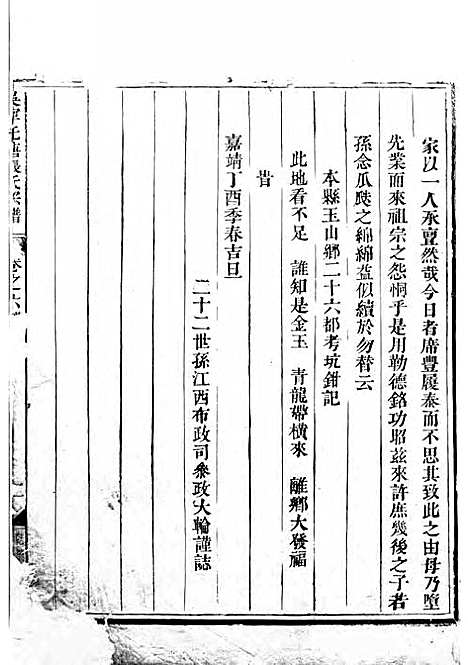 家以一人承亶然哉今日者席豐履泰而不思其致此之由毋乃墮
先業而來祖宗之怨恫乎是用勒德銘功昭茲來許庶幾後之子若
孫念瓜瓞之綿綿益似續於勿替云
本縣玉山鄉二十六都考坑鉗記
此地看不足　誰知是金玉　青龍帶橫來　離鄉大發福
旹
嘉靖丁酉季春吉旦
二十二世孫江西布政司參政大輪謹誌
吳寧托塘張氏宗譜
卷之六